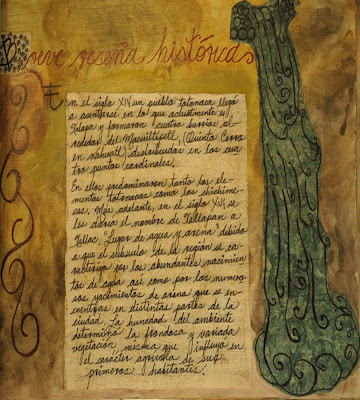 Breve reseña histórica
En el siglo XIV un pueblo totonaca llegó
a asentarse en lo que actualmente es
Xalapa y formaron cuatro barrios al-
rededor del Macuiltépetl, (Quinto Cerro
en náhuatl) desbordados en los cua
tro puntos cardinales.
En ellos predominaron tanto los ele-
mentos totonacas como los chichime-
cas. Más adelante, en el siglo XVI, se
les daría el nombre de Xallapan o
Xalloc, "Lugar de agua y arena" debido
a que el subsuelo de la región se ca-
racteriza por los abundantes nacimien
tos de agua así como por los numero
sos yacimientos de arena que se en-
cuentran en distintas partes de la
ciudad. La humedad del ambiente
determina la frondosa y variada
vegetación, misma que influyó en
el carácter agrícola de sus
primeros habitantes.